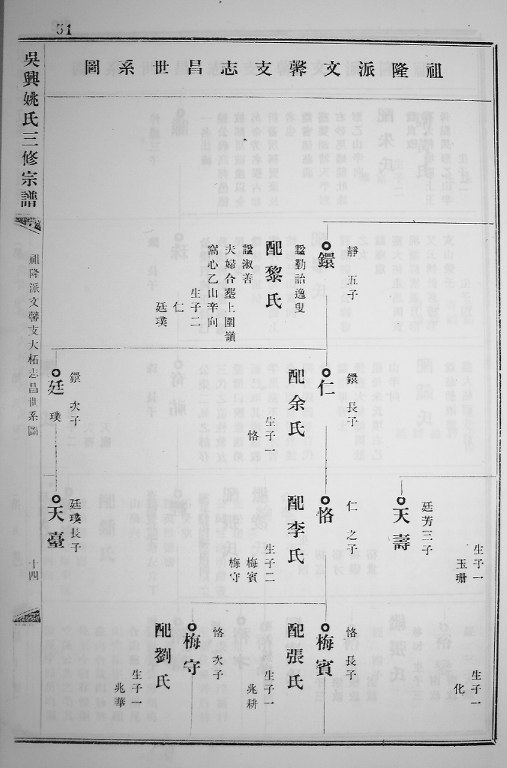 51
祖隆派文馨支志昌世系圖
吳興姚氏三修宗譜
祖隆派文馨支大柘志昌世系圖
十四
鐶
靜五子
諡勤詒逸叟
配黎氏
諡淑善
夫婦合塟上圍嶺
窩心乙山辛向
生子二
仁
廷璞
仁
鐶長子
配余氏
生子一
恪
廷璞
鐶次子
天壽
廷芳三子
生子一
玉珊
恪
仁之子
配李氏
生子二
梅賓
梅守
天臺
廷璞長子
生子一
化
梅賓
恪長子
配張氏
生子一
兆耕
梅守
恪次子
配劉氏
生子一
兆華